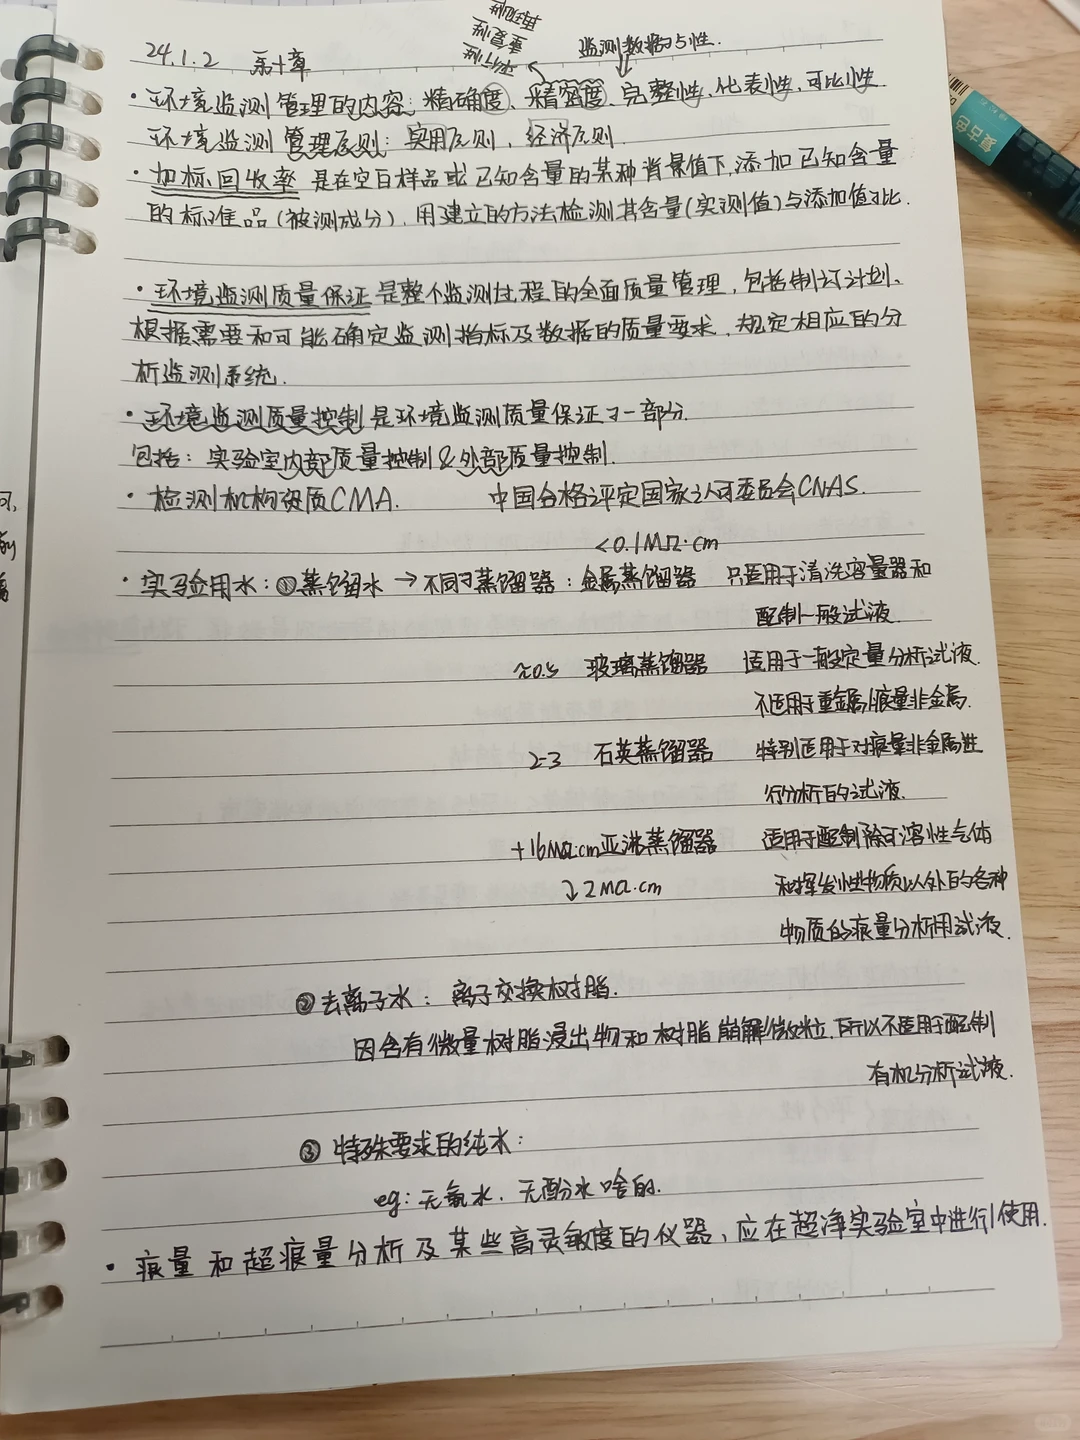 24.1.2 第十章
再现性
重复性
平行性
监测数据的5性.
·环境监测管理的内容:精确度、精密度、完整性、代表性、可比性
环境监测管理原则:实用原则,经济原则
·加标回收率 是在空白样品或已知含量的某种背景值下,添加已知含量
的标准品(被测成分),用建立的方法检测其含量(实测值)与添加值对比.
·环境监测质量保证是整个监测过程的全面质量管理,包括制订计划、
根据需要和可能确定监测指标及数据的质量要求,规定相应的分
析监测系统.
·环境监测质量控制是环境监测质量保证了一部分.
包括:实验室内部质量控制&外部质量控制.
·检测机构资质CMA. 中国合格评定国家认可委员会CNAS.
<0.1MΩ·cm
·实验用水:①蒸馏水→不同了蒸馏器:金属蒸馏器 只适用于清洗容量器和
配制一般试液.
≈0.5 玻璃蒸馏器 适用于一般定量分析试液.
不适用于重金属/痕量非金属.
2-3 石英蒸馏器 特别适用于对痕量非金属进
行分析的试液.
+16MΩ·cm亚沸蒸馏器 适用于配制除可溶性气体
↓2MΩ·cm 和挥发性物质以外的各种
物质的痕量分析用试液.
②去离子水:离子交换树脂.
因含有微量树脂浸出物和树脂崩解微粒,所以不适用于配制
有机分析试液.
③特殊要求的纯水:
eg:无氨水.无酚水啥的.
·痕量和超痕量分析及某些高灵敏度的仪器,应在超净实验室中进行/使用.
复古色